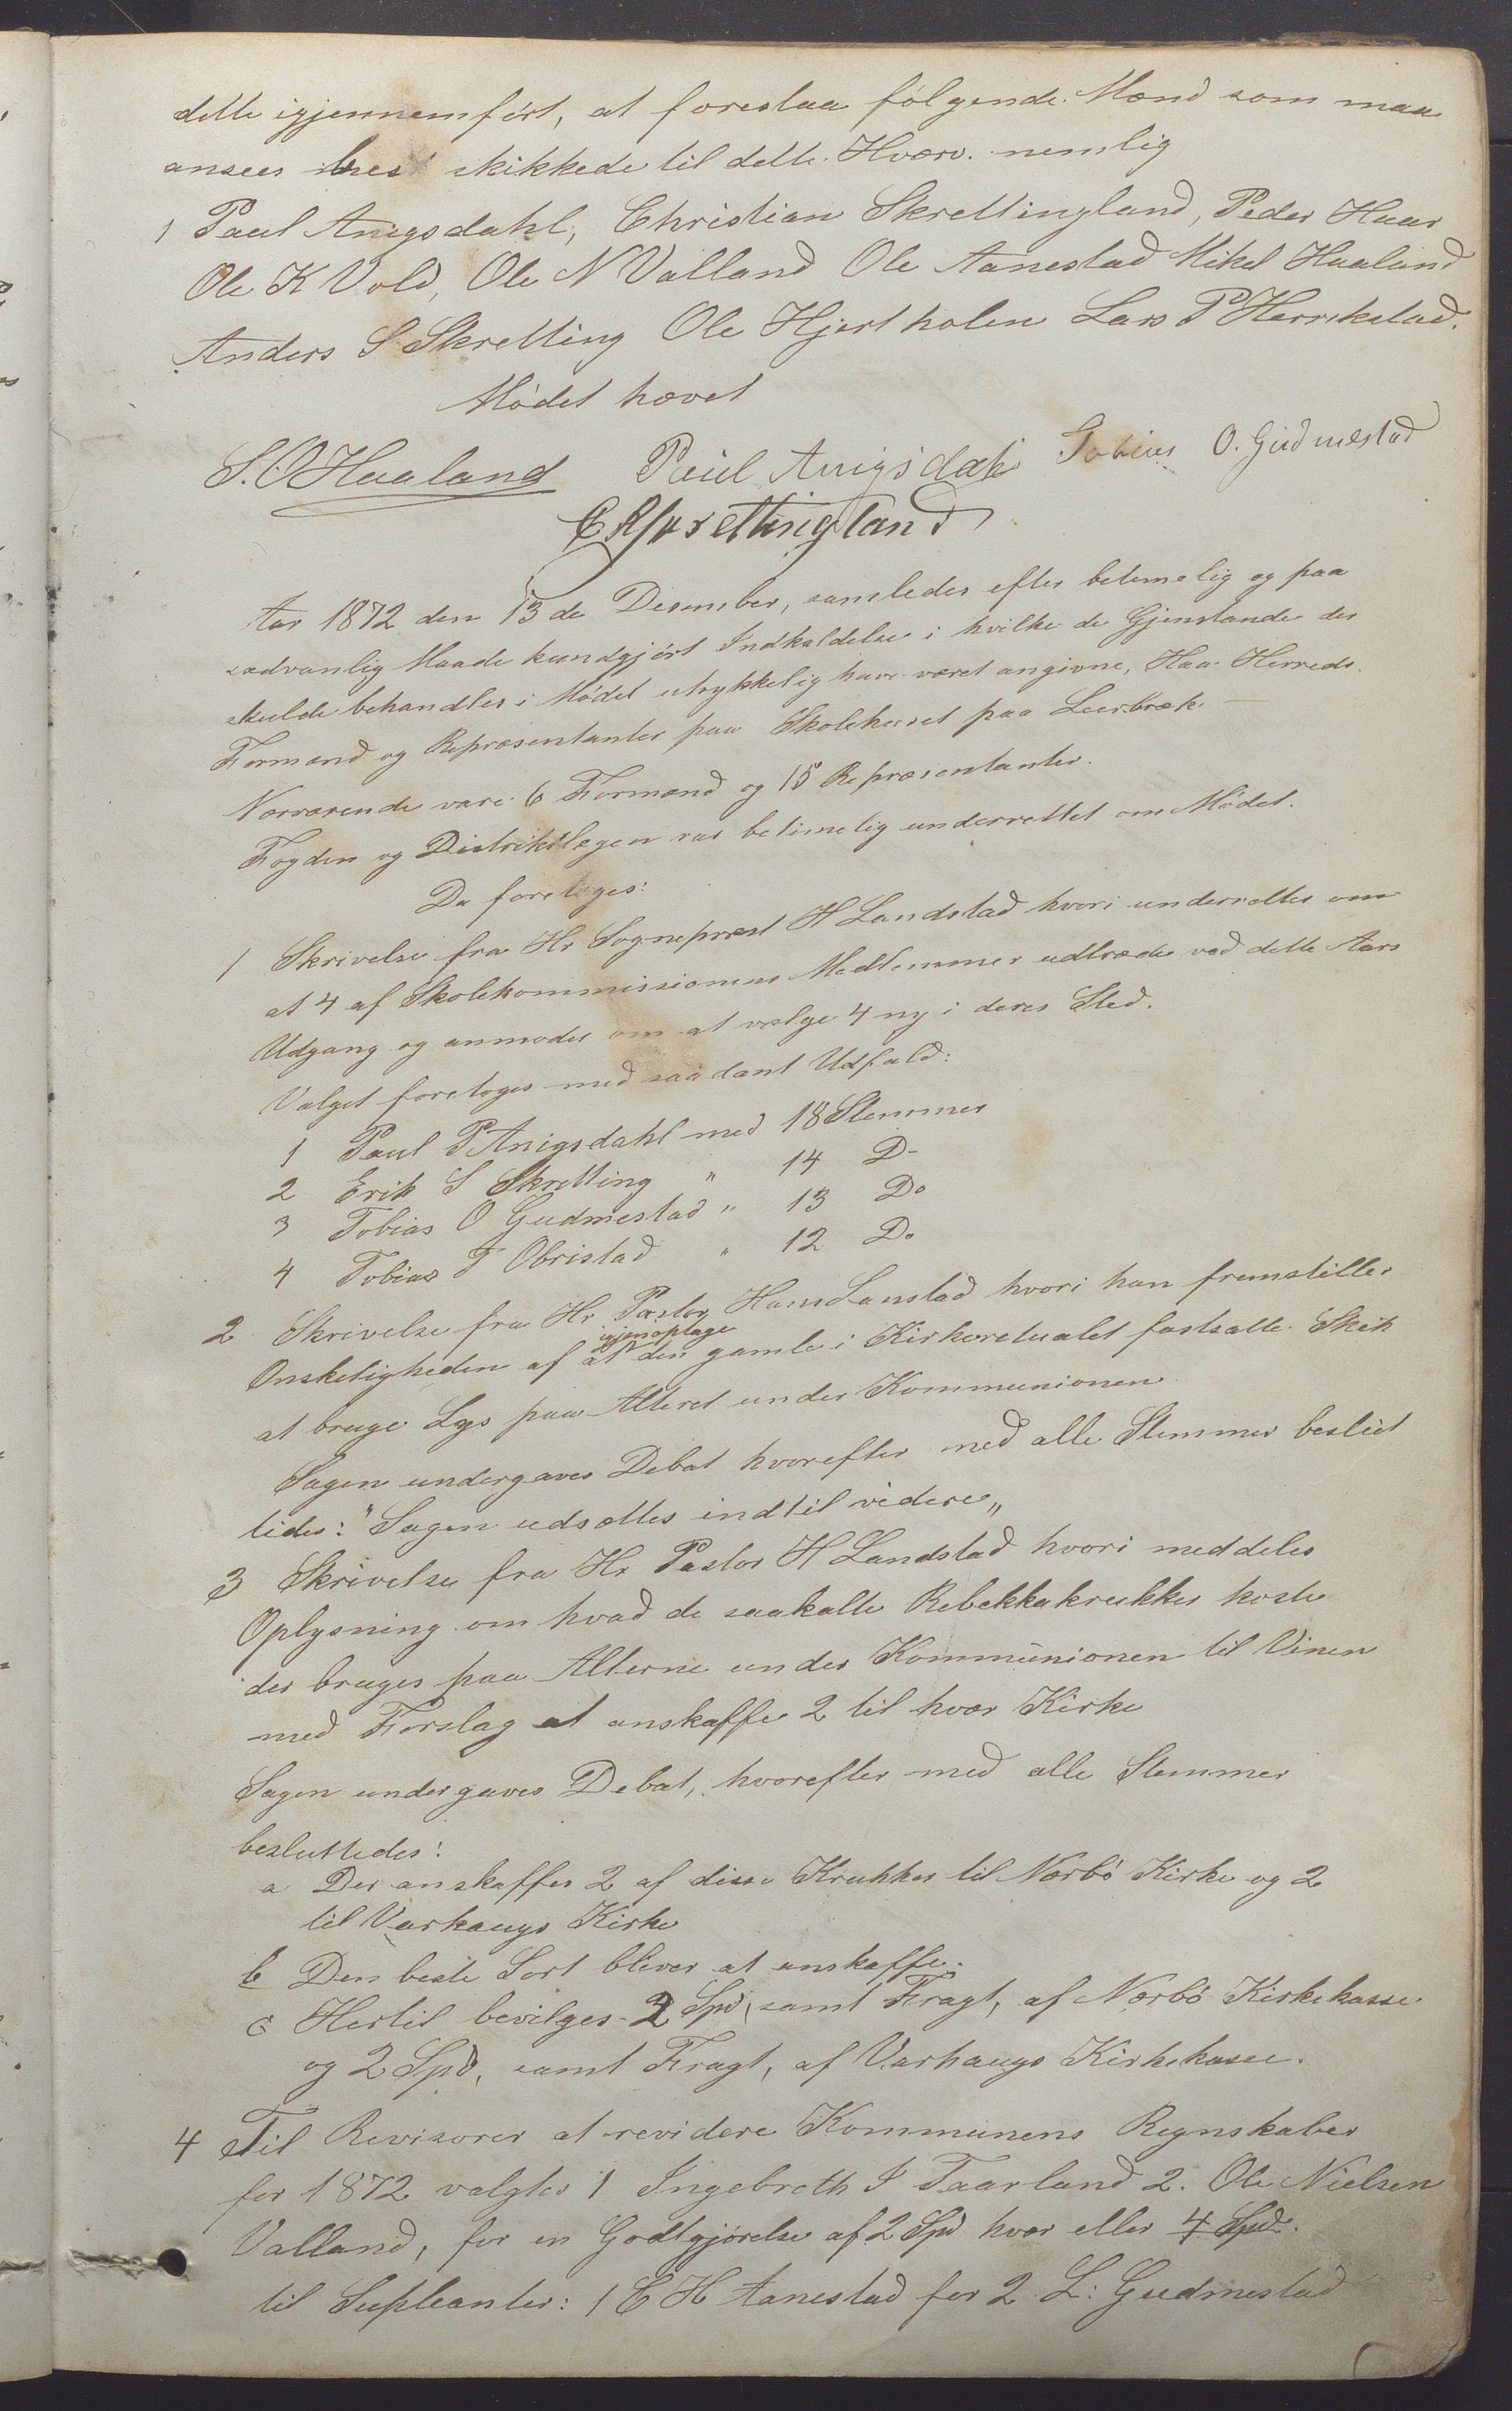 dette igjennemført, at foreslaa følgende Mænd som maa
ansees best skikkede til dette Hværv. nemlig
1 Paul Anigsdahl, Christian Skrettingland, Peder Haar
Ole K Vold, Ole N Valland Ole Aanestad Mikel Haaland
Anders S Skretting Ole Hjert holen Lars P Herrikstad.
Mödet hævet
S. O Haaland Paul Anigsdah Tobias O. Gudmestad
C Skrettingland
Aar 1872 den 13 de Desember, samledes efter betimelig og paa
sædvanlig Maade kundgjört Indkaldelse i hvilke de Gjenstande der
skulde behandles i Mödet utrykkelig have været angivne, Haa Herreds
Formænd og Repræsentanter paa Skolehuset paa Leerbræk. —
Nærværende vare 6 Formænd og 15 Repræsentanter.
Fogden og Distriktlægen var betimelig underrettet om Mödet.
Da foretoges:
1 Skrivelse fra Hr Sogneprest H Landstad hvori underrettes om
at 4 af Skolekommissionens Medlemmer udtræde ved dette Aars
Udgang og anmodes om at vælge 4 ny i deres Sted.
Valget foretoges med saadant Udfald:
1 Paul P Anigsdahl med 18 Stemmer
2 Erik S Skretting " 14 D-
3 Tobias O Gudmestad " 13 Do
4 Tobias T Obristad " 12 Do
2 Skrivelse fra Hr Pastor Hans Lanstad hvori han fremstiller
igjenoptage
Onskeligheden af at den gamle i Kirkeretualet fastsatte Skik
at bruge Lys paa Alteret under Kommunionen
Sagen undergaves Debat hvorefter med alle Stemmer beslut
tedes: "Sagen udsættes indtil videre„
3 Skrivelse fra Hr Pastor H Landstad hvori meddeles
Oplysning om hvad de saakalte Rebekkakrukker koste
der bruges paa Alterne under Kommunionen til Vinen
med Forslag at anskaffe 2 til hver Kirke
Sagen undergaves Debat, hvorefter med alle Stemmer
besluttedes:
a Der anskaffes 2 af disse Krukker til Nærbö Kirke og 2
til Varhaugs Kirke
b Den beste Sort bliver at anskaffe.
c Hertil bevilges 2 Spd, samt Fragt, af Nærbö Kirkekasse
og 2 Spd, samt Fragt, af Varhaugs Kirkekasse.
4 Til Revisorer at revidere Kommunens Regnskaber
for 1872 valgtes 1 Ingebreth I Taarland 2. Ole Nielsen
Valland, for en Godtgjörelse af 2 Spd hver eller 4 Spd.
til Supleanter: 1 E H Aanestad for 2 L: Gudmestad